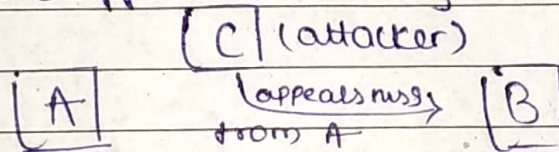 C (attacker)
A appears msg B
from A